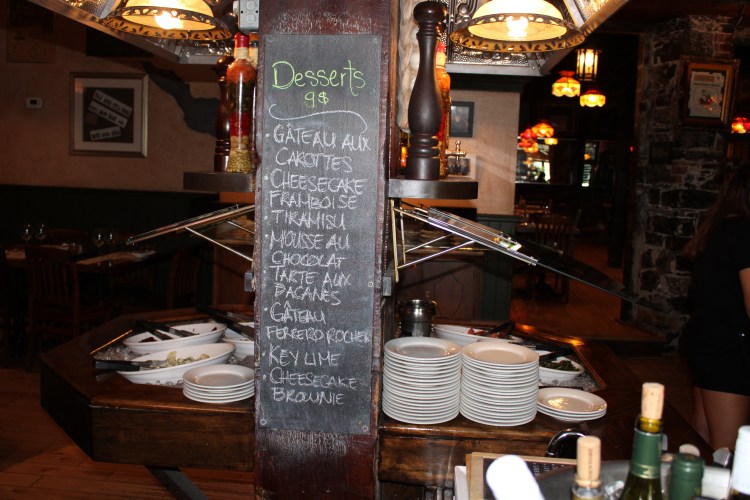 Desserts
9$
• GÂTEAU AUX
CAROTTES
• CHEESECAKE
FRAMBOISE
• TIRAMISU
• MOUSSE AU
CHOCOLAT
• TARTE AUX
PACANES
• GÂTEAU
FERRERO ROCHER
• KEY LIME
• CHEESECAKE
BROWNIE